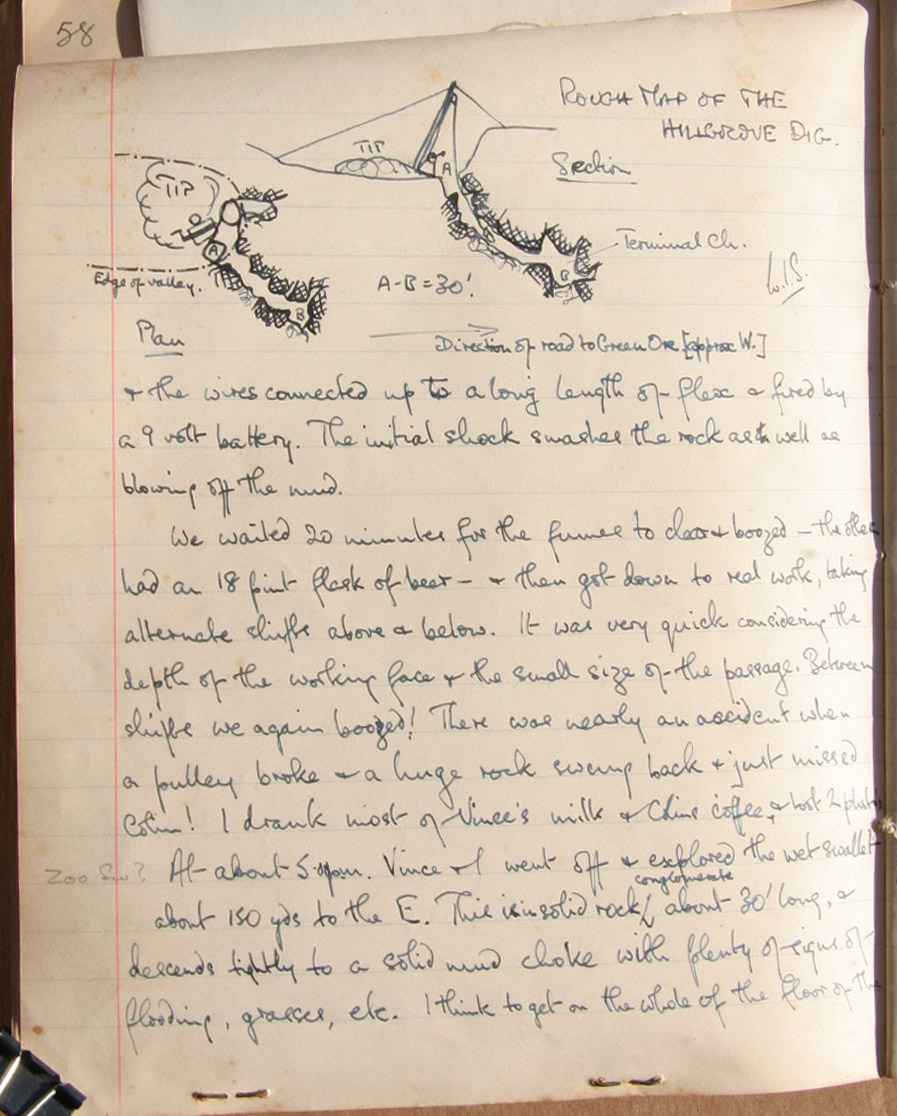 58
ROUGH MAP OF THE
HILLGROVE DIG.
Section
TIP
A
Terminal Ch.
B
W.I.S.
TIP
A
Edge of valley.
B
A-B = 30'.
Plan
Direction of road to Green Ore [approx W.]
& the wires connected up to a long length of flex & fired by
a 9 volt battery. The initial shock smashes the rock as well as
blowing off the mud.
We waited 20 minutes for the fumes to clear & boozed – the others
had an 18 pint flask of beer – & then got down to real work, taking
alternate shifts above & below. It was very quick considering the
depth of the working face & the small size of the passage. Between
shifts we again boozed! There was nearly an accident when
a pulley broke & a huge rock swung back & just missed
Colin! I drank most of Vince's milk & Colins coffee, & took 2 photos
At about 5.0pm. Vince & I went off & explored the wet swallet
about 150 yds to the E. This is in solid rock conglomerate about 30' long, &
descends tightly to a solid mud choke with plenty of signs of
flooding, grasses, etc. I think to get on the whole of the floor of the